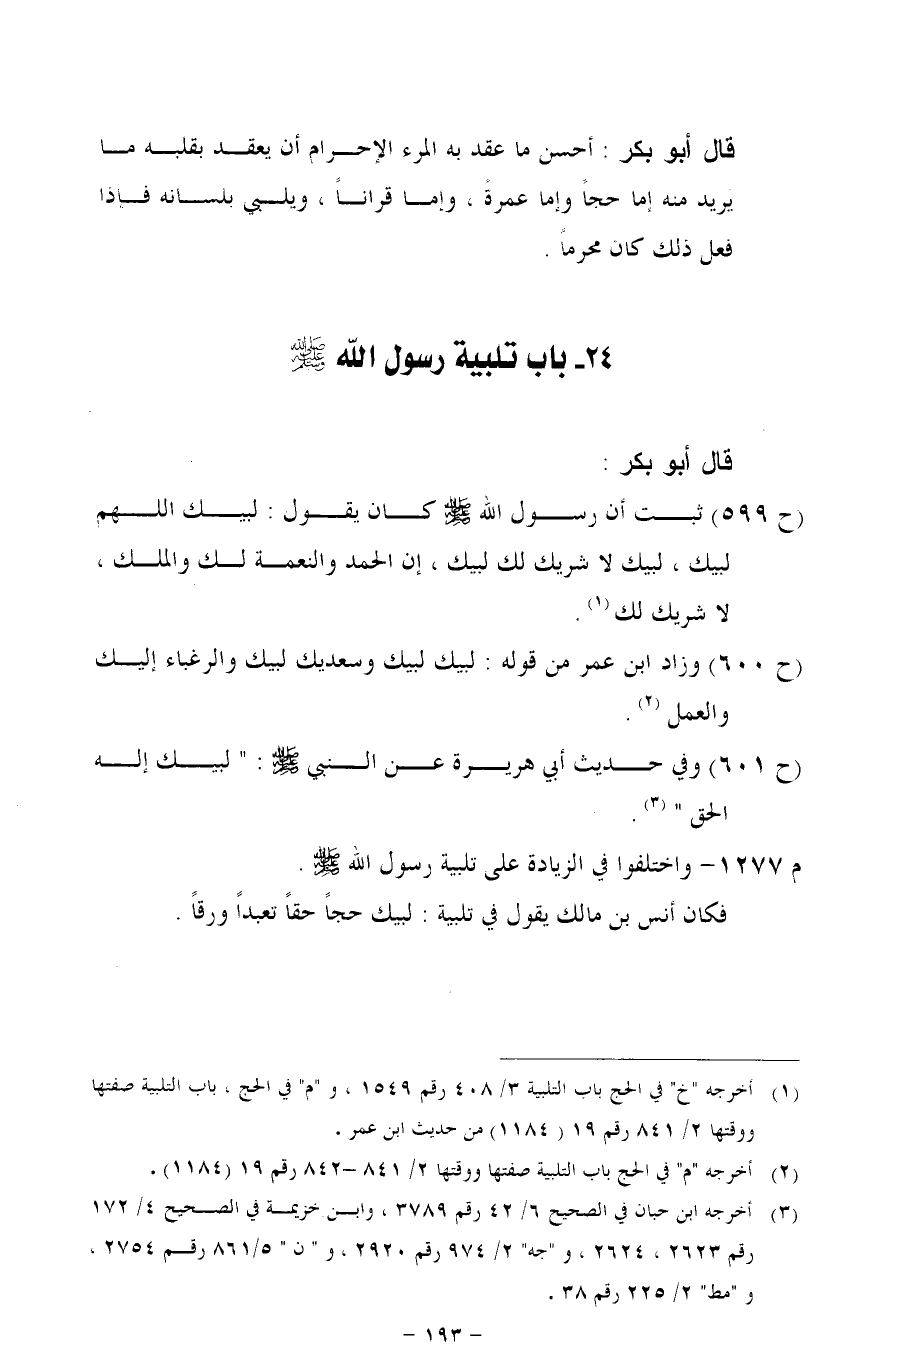 قال أبو بكر : أحسن ما عقد به المرء الإحرام أن يعقد بقلبه ما
يريد منه إما حجاً وإما عمرةً ، وإما قراناً ، ويلبي بلسانه فإذا
فعل ذلك كان محرماً .
٢٤ـ باب تلبية رسول الله ﷺ
قال أبو بكر :
(ح ٥٩٩) ثبت أن رسول الله ﷺ كان يقول : لبيك اللهم
لبيك ، لبيك لا شريك لك لبيك ، إن الحمد والنعمة لك والملك ،
لا شريك لك (١) .
(ح ٦٠٠) وزاد ابن عمر من قوله : لبيك لبيك وسعديك لبيك والرغباء إليك
والعمل (٢) .
(ح ٦٠١) وفي حديث أبي هريرة عن النبي ﷺ : " لبيك إله
الحق " (٣) .
م ١٢٧٧- واختلفوا في الزيادة على تلبية رسول الله ﷺ .
فكان أنس بن مالك يقول في تلبية : لبيك حجاً حقاً تعبداً ورقاً .
(١) أخرجه "خ" في الحج باب التلبية ٣/ ٤٠٨ رقم ١٥٤٩ ، و "م" في الحج ، باب التلبية صفتها
ووقتها ٢/ ٨٤١ رقم ١٩ ( ١١٨٤) من حديث ابن عمر .
(٢) أخرجه "م" في الحج باب التلبية صفتها ووقتها ٢/ ٨٤١ -٨٤٢ رقم ١٩ (١١٨٤) .
(٣) أخرجه ابن حبان في الصحيح ٦/ ٤٢ رقم ٣٧٨٩ ، وابن خزيمة في الصحيح ٤/ ١٧٢
رقم ٢٦٢٣ ، ٢٦٢٤ ، و "جه" ٢/ ٩٧٤ رقم ٢٩٢٠ ، و " ن " ٥/ ٨٦١ رقم ٢٧٥٤ ،
و "مط" ٢/ ٢٢٥ رقم ٣٨ .
- ١٩٣ -